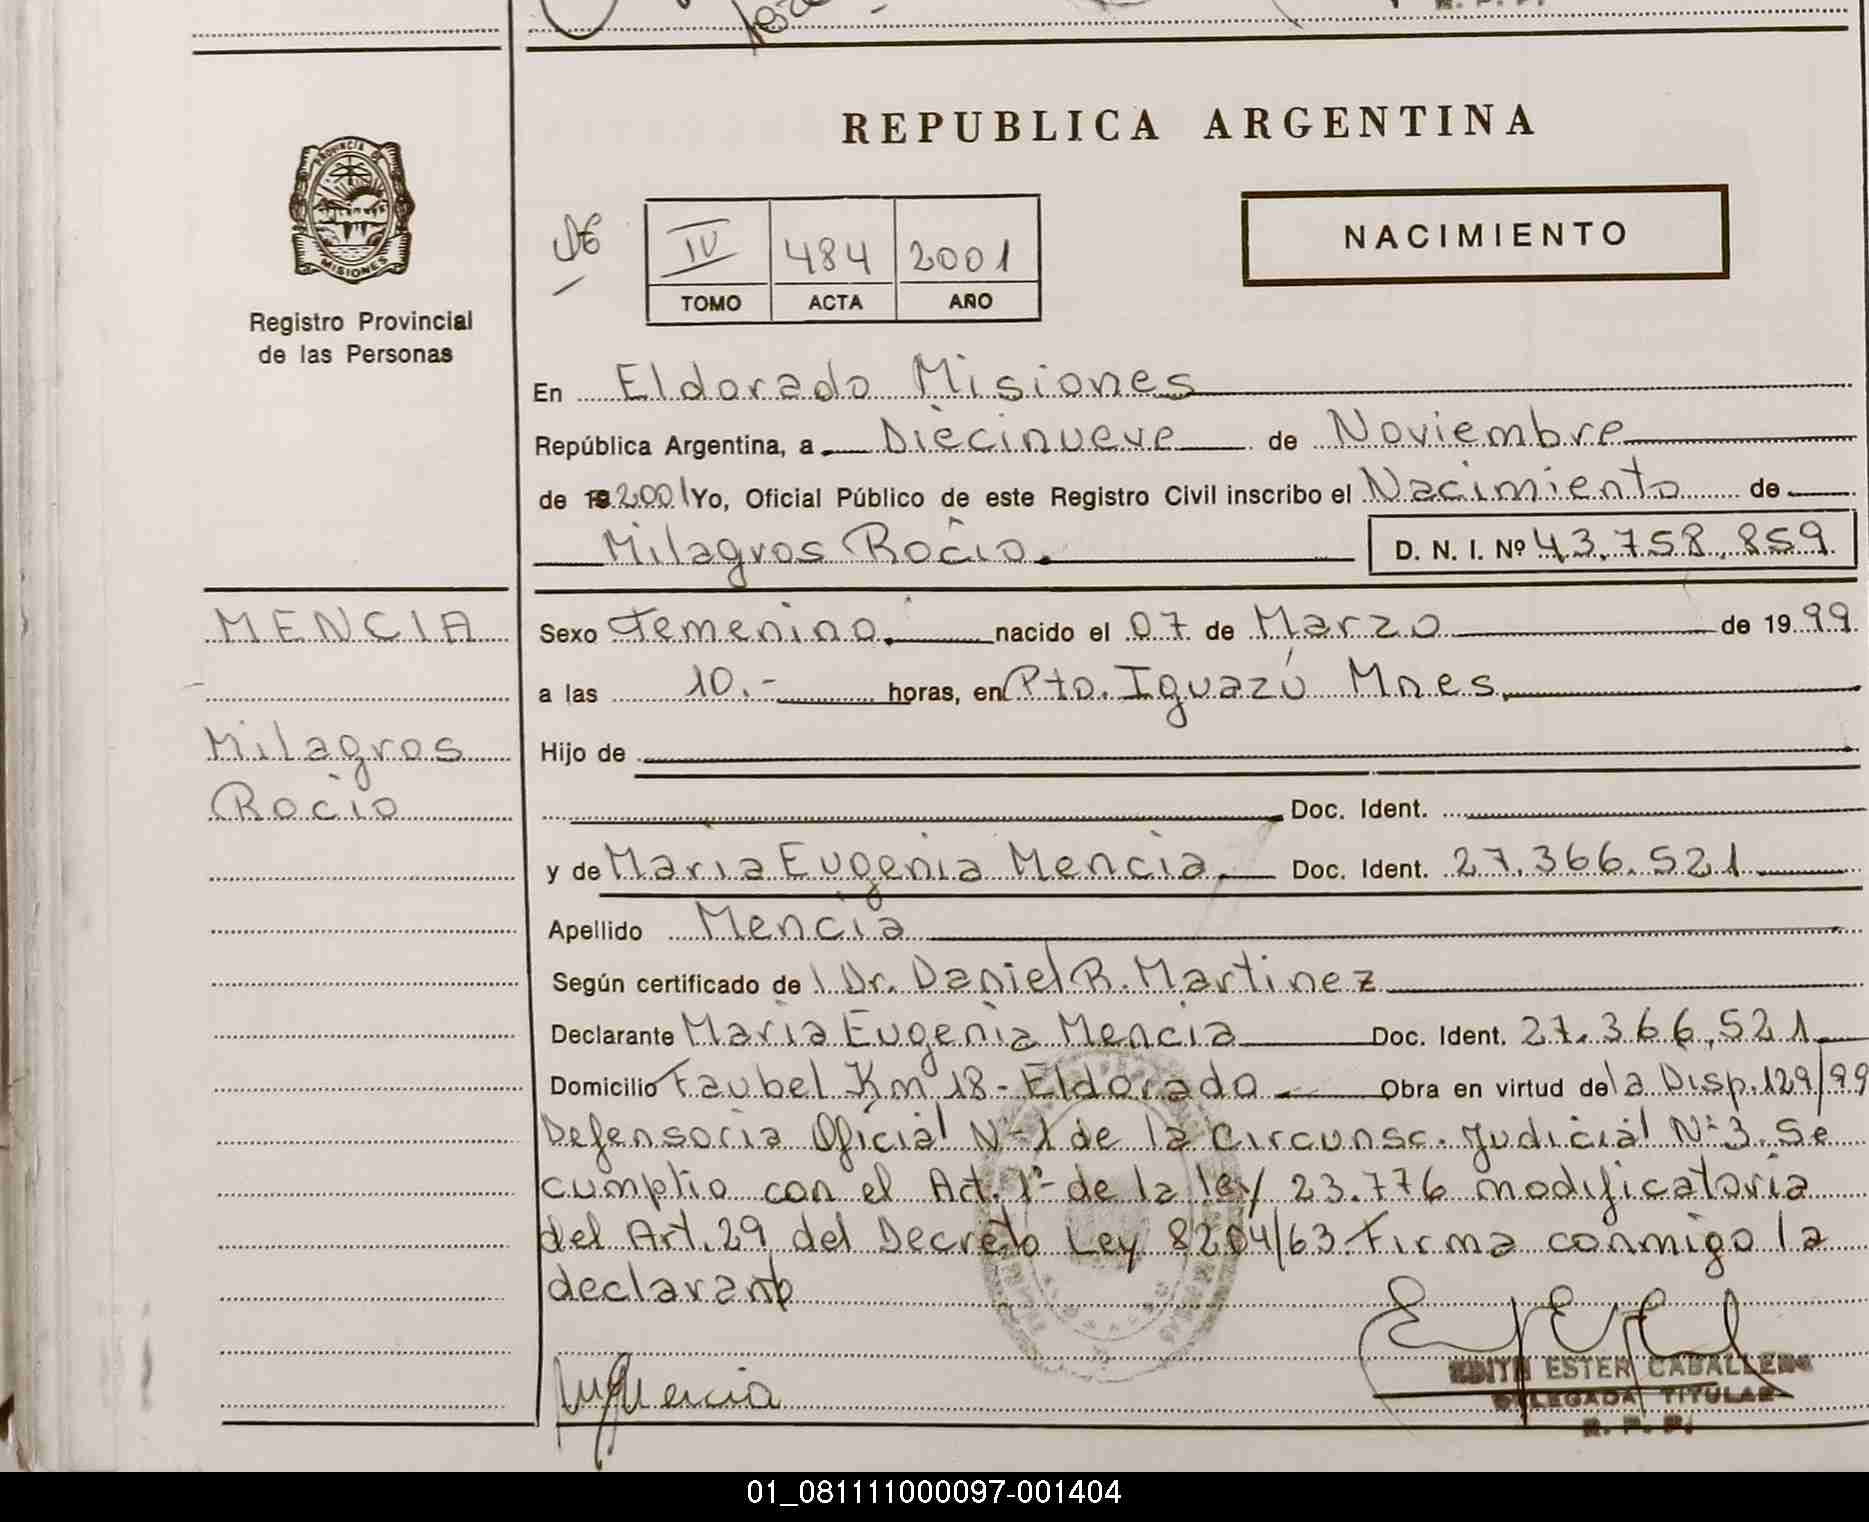 REPUBLICA ARGENTINA
PROVINCIA DE
MISIONES
Registro Provincial
de las Personas
IV 484 2001
TOMO ACTA AÑO
NACIMIENTO
En Eldorado Misiones
República Argentina, a Diecinueve de Noviembre
de 19 2001 Yo, Oficial Público de este Registro Civil inscribo el Nacimiento de
Milagros Rocio. D. N. I. Nº 43.758.859
MENCIA
Milagros
Rocio
Sexo Femenino. nacido el 07 de Marzo de 19 99
a las 10.- horas, en Pto. Iguazú Mnes.
Hijo de
Doc. Ident.
y de Maria Eugenia Mencia. Doc. Ident. 27.366.521
Apellido Mencia
Según certificado de l Dr. Daniel R. Martinez
Declarante Maria Eugenia Mencia Doc. Ident. 27.366.521
Domicilio Faubel Km 18 - Eldorado Obra en virtud de la Disp. 129/99
Defensoria Oficial Nº 1 de la Circunsc. Judicial Nº 3. Se
cumplio con el Art. 1º de la ley 23.776 modificatoria
del Art. 29 del Decreto Ley 8204/63. Firma conmigo la
declarante
EDITH ESTER CABALLERO
DELEGADA TITULAR
R. P. P.
01_081111000097-001404